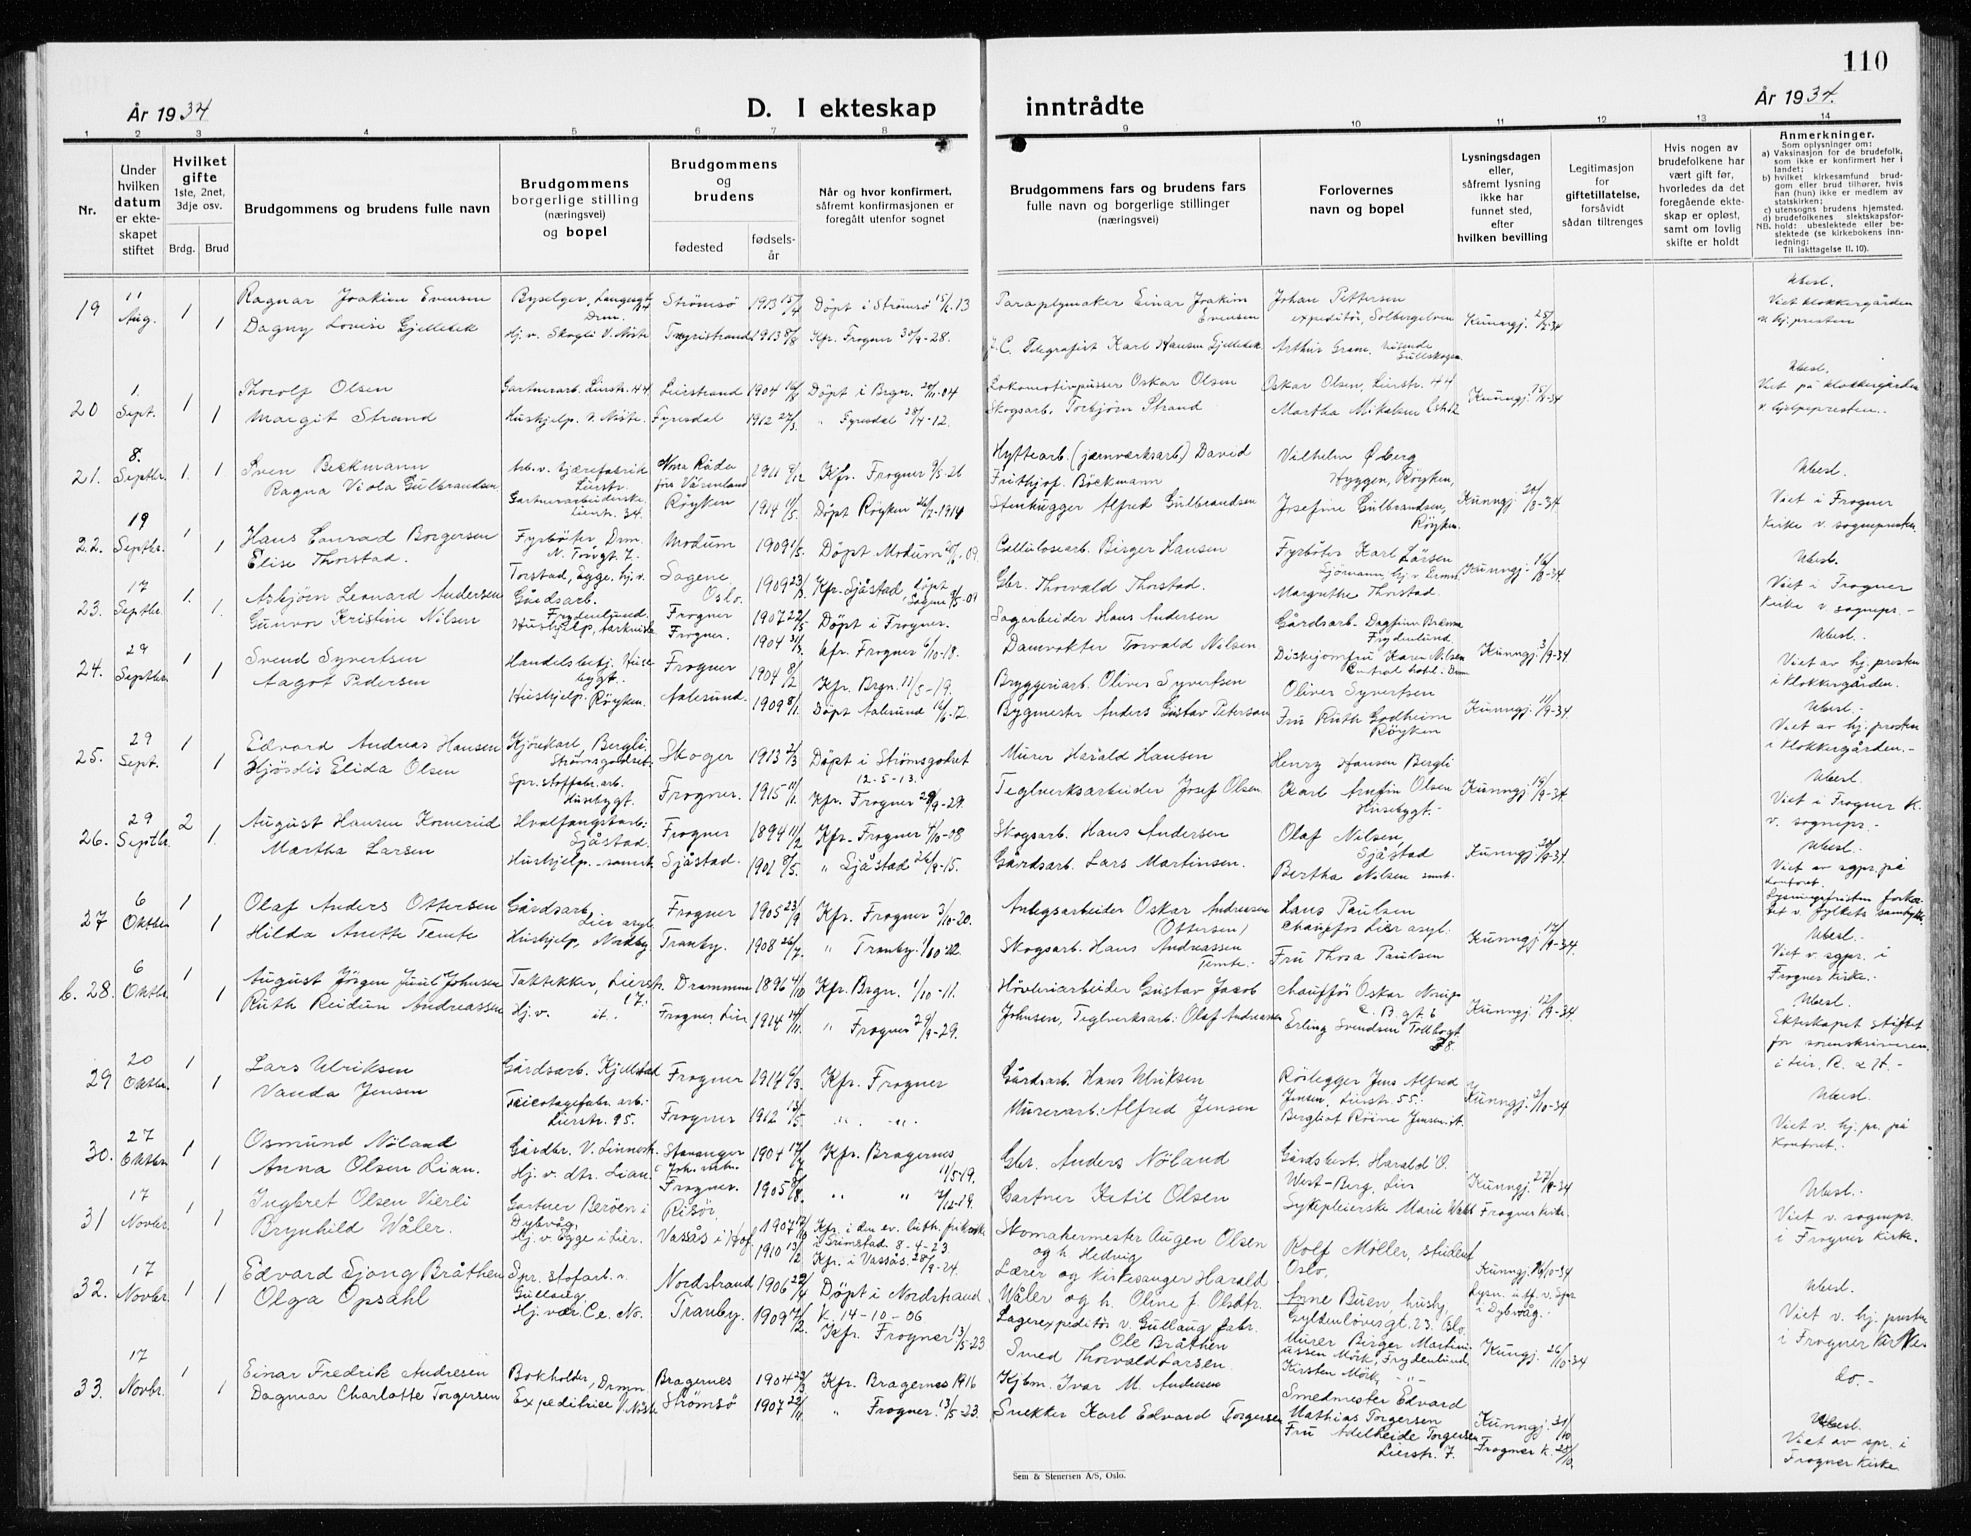 110
År 1934
D. I ekteskap inntrådte
År 1934.
1 2 3 4 5 6 7 8 9 10 11 12 13 14
Nr.
Under hvilken datum er ekteskapet stiftet
Hvilket gifte
1ste, 2net, 3dje osv.
Brdg. Brud
Brudgommens og brudens fulle navn
Brudgommens borgerlige stilling (næringsvei) og bopel
Brudgommens og brudens
fødested
fødselsår
Når og hvor konfirmert, såfremt konfirmasjonen er foregått utenfor sognet
Brudgommens fars og brudens fars fulle navn og borgerlige stillinger (næringsvei)
Forlovernes navn og bopel
Lysningsdagen eller, såfremt lysning ikke har funnet sted, efter hvilken bevilling
Legitimasjon for giftetillatelse, forsåvidt sådan tiltrenges
Hvis nogen av brudefolkene har vært gift før, hvorledes da det foregående ekteskap er opløst, samt om lovlig skifte er holdt
Anmerkninger.
Som oplysninger om:
a) Vaksinasjon for de brudefolk, som ikke er konfirmert her i landet;
b) hvilket kirkesamfund brudgom eller brud tilhører, hvis han (hun) ikke er medlem av statskirken;
c) utensogns brudens hjemsted.
d) brudefolkenes slektskapsforhold: ubeslektede eller beslektede (se kirkebokens innledning:
NB.
Til iakttagelse II. 10).
19 11 Aug. 1 1
Ragnar Joakim Evensen
Dagny Lovise Gjelletek
Byselger, Drm.
Hj. v. Skogli V. Nøste
Strømsø 1913 15/4
Tyristrand 1913 8/8
Døpt i Strømsø 15/6.13
Kfr. Frogner 30/9-28.
Paraplymaker Einar Joakim Evensen
Telegrafist Karl Hansen Gjelletek
Johan Pettersen
expeditør, Solbergelven
Arthur Gram, Gullskogen
Kunngj. 28/7-34
Ubesl.
Viet klokkergården
v. hj. presten
20 1. Sept. 1 1
Thorolf Olsen
Margit Strand
Gartnerarb. Lierstr. 44
Hushjelp. V. Nøste.
Lierstrand 1904
Fyresdal 1912 27/3
Døpt i Brgn. 20/11-04
" Fyresdal 28/4-12.
Lokomotivpusser Oskar Olsen
Skogsarb. Torbjørn Strand
Oskar Olsen, Lierstr. 44
Martha Mikalsen
Kunngj. 15/8-34
Ubesl.
Viet på klokkergården
v. hjelpepresten.
21. 8. Septbr. 1. 1
Sven Beckmann
Ragna Viola Gulbrandsen
Arb. v. tjærefabrik Lierstr.
Gartnerarbeiderske Lierstr. 34.
Värmland 1911 9/12
Røyken 1914 11/5.
Kfr. Frogner 9/5-26
Døpt Røyken 26/7-1914
Hyttearb. (jernverksarb.) David
Frithjof Böckmann
Stenhugger Alfred Gulbrandsen
Vilhelm Øberg
Hyggen, Røyken,
Josefine Gulbrandsen, Røyken.
Kunngj. 20/8-34.
Ubesl.
Viet i Frogner
Kirke v. sognepresten
22. 19 Septbr. 1 1
Hans Conrad Borgersen
Elise Thorstad.
Fyrbøter Drm.
N. Torvgt 7.
Torstad, Egge, hj. v.
Modum 1909 1/5.
Sagene Oslo. 1909 23/3
Døpt Modum 09
Kfr. Sjåstad
Cellulosearb. Birger Hansen
Gbr. Thorvald Thorstad.
Fyrbøter Karl Larsen
Margrethe Thorstad.
Kunngj. 16/8-34
Ubesl.
Viet i Frogner
Kirke v. sognepr. -
23. 17 Septbr. 1. 1.
Asbjørn Leonard Andersen
Gunvor Kristine Nilsen
Gårdsarb. Frydenlund
Frogner 1907 22/5
Frogner. 1904 31/3
Døpt i Frogner.
Kfr. Frogner 6/10-18.
Sagarbeider Hans Andersen
Damvokter Torvald Nilsen
Gårdsarb. Dagfinn
Frydenlund.
Diskejomfru Karen Nilsen
Central hotel. Drm
Kunngj. 3/9-34
Ubesl.
Viet av hj. presten
i klokkergården.
24. 29 Septbr. 1 1
Svend Syvertsen
Aagot Pedersen
Handelsbetj. Husebygt.
Hushjelp. Røyken.
Frogner 1904 8/2
Aalesund. 1909 8/11.
Kfr. Brgn. 11/5-19.
Døpt Aalesund 12.
Bryggeriarb. Oliver Syvertsen
Bygmester Anders Gustav Peterson
Oliver Syvertsen
Fru Ruth Godheim
Røyken
Kunngj. 11/9-34.
Ubesl. -
Viet av hj. presten
i klokkergården. -
25. 29 Sept. 1 1
Edvard Andreas Hansen
Hjørdis Elida Olsen
Kjørekarl, Bergli,
Strømsgodset.
Spr. stoffabr. arb.
Husebygt.
Skoger 1913 2/3
Frogner. 1915 11/1.
Døpt i Strømsgodset
12-5-13.
Kfr. Frogner 29/9-29.
Murer Harald Hansen
Teglverksarbeider Josef Olsen
Henry Hansen Bergli
Karl Arnfin Olsen
Husebygt. -
Kunngj. 14/9-34.
Ubesl.
Viet i Frogner K.
v. sognepr. -
26. 29 Septbr. 2 1.
August Hansen Komerud
Martha Larsen
Hvalfangstarb.
Sjåstad.
Hushjelp. - samst.
Frogner 1894 11/2
Sjåstad. 1901 8/5.
Kfr. Frogner 4/10-08
" Sjåstad 26/9-15.
Skogsarb. Hans Andersen
Gårdsarb. Lars Martinsen.
Olaf Nilsen
Sjåstad
Bertha Nilsen smst.
Kunngj. 20/9-34.
Ubesl.
Viet av sgpr. på
Kontoret.
27 6 Oktbr. 1 1
Olaf Anders Ottersen
Hilda Anette Temte
Gårdsarb. Lier asyl
Hushjelp, Nordby
Frogner 1905 23/9
Tranby. 1908 26/7.
Kfr. Frogner 3/10-20.
" Tranby 1/10-22.
Anlegsarbeider Oskar Andreasen
(Ottersen)
Skogsarb. Hans Andreassen
Temte. -
Hans Paulsen
Chauffør Lier asyl.
Fru Thora Paulsen
Kunngj. 17/9-34.
Lysningsfristen forkortet v. fylkets samtykke
Ubesl. -
Viet v. sgpr. i
Frogner Kirke. -
b. 28. 6 Oktbr. 1 1
August Jörgen Juul Johnsen
Ruth Reidun Andreassen
Taktekker, Lierstr. 17.
Hj. v. it.
Drammen 1896 4/10
Frogner, Lier 1914 14/11.
Kfr. Brgn. 1/10-11.
" Frogner 29/9-29.
Høvleriarbeider Gustav Jacob
Johnsen, Teglverksarb. Olaf Andreassen
Chauffør Oskar
C. B. gt 6
Erling Svendsen Tollbogt 38.
Kunngj. 12/9-34
Ubesl.
Ekteskapet stiftet
for sorenskriveren
i Lier, R. & H. -
29 20 Oktbr. 1 1
Lars Ulriksen
Vanda Jensen
Gårdsarb. Kjellstad
Tricotagefabr. arb.
Lierstr. 95.
Frogner 1914 6/3.
Frogner 1912 13/5.
Kfr. Frogner
" "
Gårdsarb. Hans Ulriksen
Murerarb. Alfred Jensen
Rørlegger Jens Alfred
Jensen, Lierstr. 55.
Bergliot Jensen. it.
Kunngj. 2/10-34
Ubesl.
Viet v. hj. pr. på
Kontoret. -
30. 27 Oktbr. 1 1
Osmund Nøland
Anna Olsen Lian.
Gårdbr. V. Linnes
Hj. v. dtr. Lian.
Stavanger 1904 17/7
Frogner. 1905
Kfr. Bragernes
11/5-19.
" " 7/12-19.
Gbr. Anders Nøland
Gartner Ketil Olsen
Gårdsbest. Harald O.
West-Berg, Lier
Sykepleierske Marie
Kunngj. 27/9-34
Frogner kirke.
Ubesl. -
Viet v. sognepr.
i Frogner Kirke.
31 17 Novbr. 1 1
Ingbret Olsen Vierli
Brynhild Wåler.
Gartner Berøen i
Dybvåg,
Hj. v. Egge i Lier.
Risør 1907
Vassås i Hof 1910 13/2
Kfr. i den ev. luth. frikirke
i Grimstad. 8-4-23
Kfr. i Vassås. 28/9-24.
Skomakermester Augen Olsen
og h. Hedvig
Lærer og kirkesanger Harald
Wåler og h. Oline f. Olsdtr.
Rolf Möller, student
Oslo,
Anne Buen, husb.,
Gyldenløvesgt. 23. Oslo
Kunngj. 10-34
Lysn. utf. v. spr.
i Dybvåg.
Ubesl.
Viet v. hj. presten
i Frogner Kirke.
32. 17 Novbr. 1 1
Edvard Ejong Bråthen
Olga Opsahl
Spr. stofarb.
Gullaug,
Nordstrand 1906 22/4
Tranby. 1909 7/2.
Døpt i Nordstrand
K. 14-10-06.
Kfr. Frogner 13/5-23
Lagerexpeditør v. Gullaug fabr.
Ole Bråthen
Smed Thorvald Larsen.
Murer Birger Martiniussen
Mörk, Frydenlund,
Kirsten Mörk, -"-
Kungj. 26/10-34
do. -
33. 17 Novbr. 1 1
Einar Fredrik Andresen
Dagmar Charlotte Torgersen
Bokholder, Drmn.
Expeditrise V. Nøste
Bragernes 1904 22/3
Strømsø 1907 22/11.
Kfr. Bragernes 1916
" Frogner. 13/5-23.
Kjbm. Ivar M. Andresen
Snekker Karl Edvard Torgersen
Smedmester Edvard
Mathias Torgersen
Fru Adelheide Torgersen
Lierstr. 7.
Kunngj. 31/10
Frogner K. 28/10.
Ubesl.
Viet av spr. i
Frogner Kirke.
Sem & Stenersen A/S, Oslo.